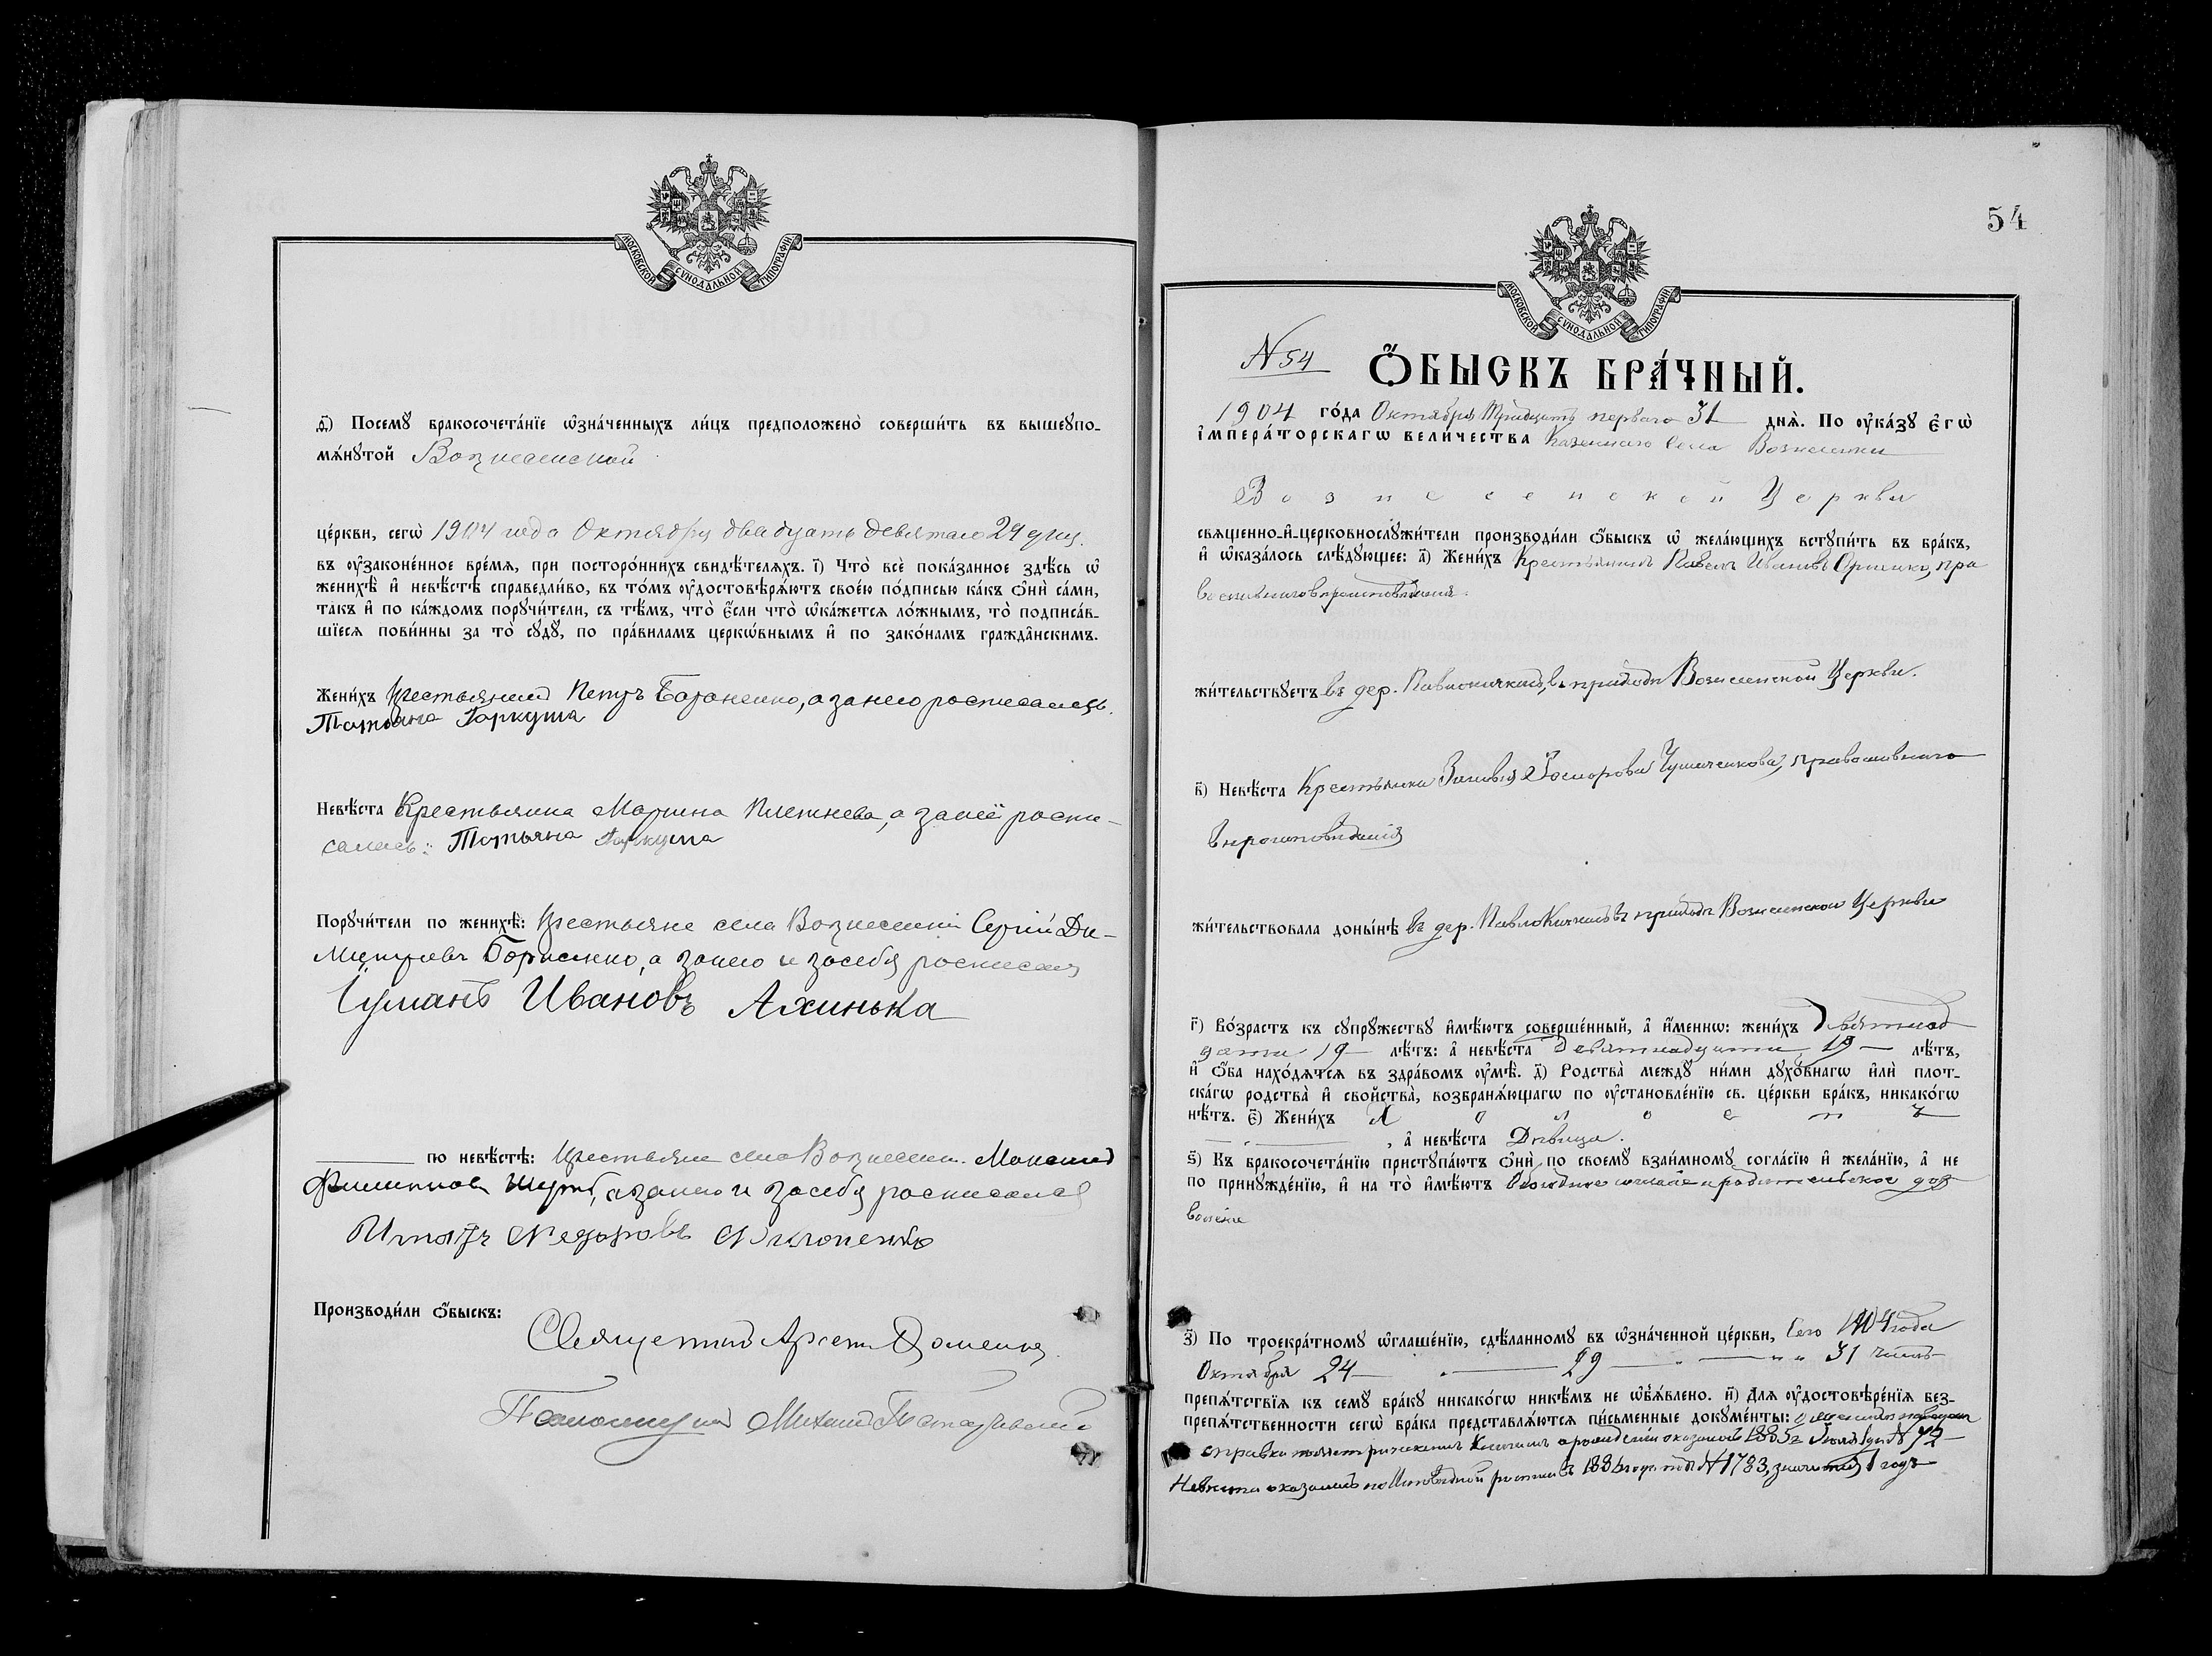 МОСКОВСКОЙ СѴНОДАЛЬНОЙ ТИПОГРАФІИ.
ѳ҃) Посемꙋ бракосочета́нїе ѡ҆зна́ченныхъ ли́цъ предположено̀ соверши́ть въ вышеꙋпо-
мѧ́нꙋтой Вознесенской
це́ркви, сегѡ̀ 1904 года Октября двадцать девятаго 29 дня.
въ ᲂу҆зако́не́нное вре́мѧ, при посторо́ннихъ свидѣ́телѧхъ. і҃) Что̀ всѐ пока́занное здѣ́сь ѡ҆
женихѣ̀ и҆ невѣ́стѣ справедли́во, въ то́мъ ᲂу҆достовѣрѧ́ютъ свое́ю по́дписью ка́къ ѻ҆нѝ са́ми,
та́къ и҆ по ка́ждомъ порꙋчи́тели, съ тѣ́мъ, что̀ є҆́сли что̀ ѡ҆ка́жетсѧ ло́жнымъ, то̀ подписа́в-
шїесѧ пови́нны за то̀ сꙋдꙋ̀, по пра́виламъ церкѡ́внымъ и҆ по зако́намъ гражда̑нскимъ.
Жени́хъ Крестьянин Петръ Бараненко, а за него росписалась
Татьяна Гаркуша
Невѣ́ста Крестьянка Марина Плетнева, а за неё роспи-
салась: Татьяна Гаркуша
Порꙋчи́тели по женихѣ̀: Крестьяне села Вознесенки Сергій Ди-
митріевъ Борисенко, а за него и за себя росписался
Ивановъ Ахинька
по невѣ́стѣ: Крестьяне села Вознесен. Максимъ
а за него и за себя росписался
Игнатъ Федоровъ
Производи́ли ѻ҆́быскъ:
Священникъ
Псаломщикъ Михаил
54
МОСКОВСКОЙ СѴНОДАЛЬНОЙ ТИПОГРАФІИ.
N 54 Ѻ҆́БЫСКЪ БРА́ЧНЫЙ.
1904 го́да Октября Тридцать перваго 31 днѧ̀. По ᲂу҆ка́зꙋ є҆гѡ̀
і҆мпера́торскагѡ вели́чества Казеннаго села Вознесенки
Вознесенской Церкви
свѧще́нно-и҆-церковнослꙋжи́тели производи́ли ѻ҆́быскъ ѡ҆ жела́ющихъ встꙋпи́ть въ бра́къ,
и҆ ѡ҆каза́лось слѣ́дꙋющее: а҃) Жени́хъ Крестьянинъ Павелъ Ивановъ пра
вославнаго вѣроисповѣданія
жи́тельствꙋетъ въ дер. въ приходѣ Вознесенской Церкви.
в҃) Невѣ́ста Крестьянка Зиновія православнаго
вѣроисповѣданія
жи́тельствовала доны́нѣ въ дер. въ приходѣ Вознесенской Церкви
г҃) Во́зрастъ къ сꙋпрꙋ́жествꙋ и҆мѣ́ютъ соверше́нный, а҆ и҆́меннѡ: жени́хъ Девятнад
цати 19 лѣ́тъ: а҆ невѣ́ста Девятнадцати 19 лѣ́тъ,
и҆ ѻ҆́ба нахо́дѧтсѧ въ здра́вомъ ᲂу҆мѣ̀. д҃) Родства̀ междꙋ̀ ни́ми дꙋхо́внагѡ и҆лѝ плот-
ска́гѡ родства̀ и҆ сво́йства, возбранѧ́ющагѡ по ᲂу҆становле́нїю св. це́ркви бра́къ, никако́гѡ
нѣ́тъ. є҃) Жени́хъ Холостъ
, а҆ невѣ́ста Дѣвица.
ѕ҃) Къ бракосочета́нїю пристꙋпа́ютъ ѻ҆нѝ по своемꙋ̀ взаи́мномꙋ согла́сїю и҆ жела́нїю, а҆ не
по принꙋжде́нїю, и҆ на то̀ и҆мѣ́ютъ свободное согласіе и родительское доз
воленіе
з҃) По троекра́тномꙋ ѡ҆глаше́нїю, сдѣ́ланномꙋ въ ѡ҆зна́ченной це́ркви, Сего 1904 года
Октября 24 29 31 числъ
препѧ́тствїѧ къ семꙋ̀ бра́кꙋ никако́гѡ никѣ́мъ не ѡ҆б̾ѧ́влено. и҃) Длѧ ᲂу҆достовѣре́нїѧ без-
препѧ́тственности сегѡ̀ бра́ка представлѧ́ютсѧ пи́сьменные докꙋме́нты:
справка по метрическимъ Книгамъ о рожденіи оказалось 1885 г. N 72
Невѣста оказалась по Исповѣдной росписи N 1783,